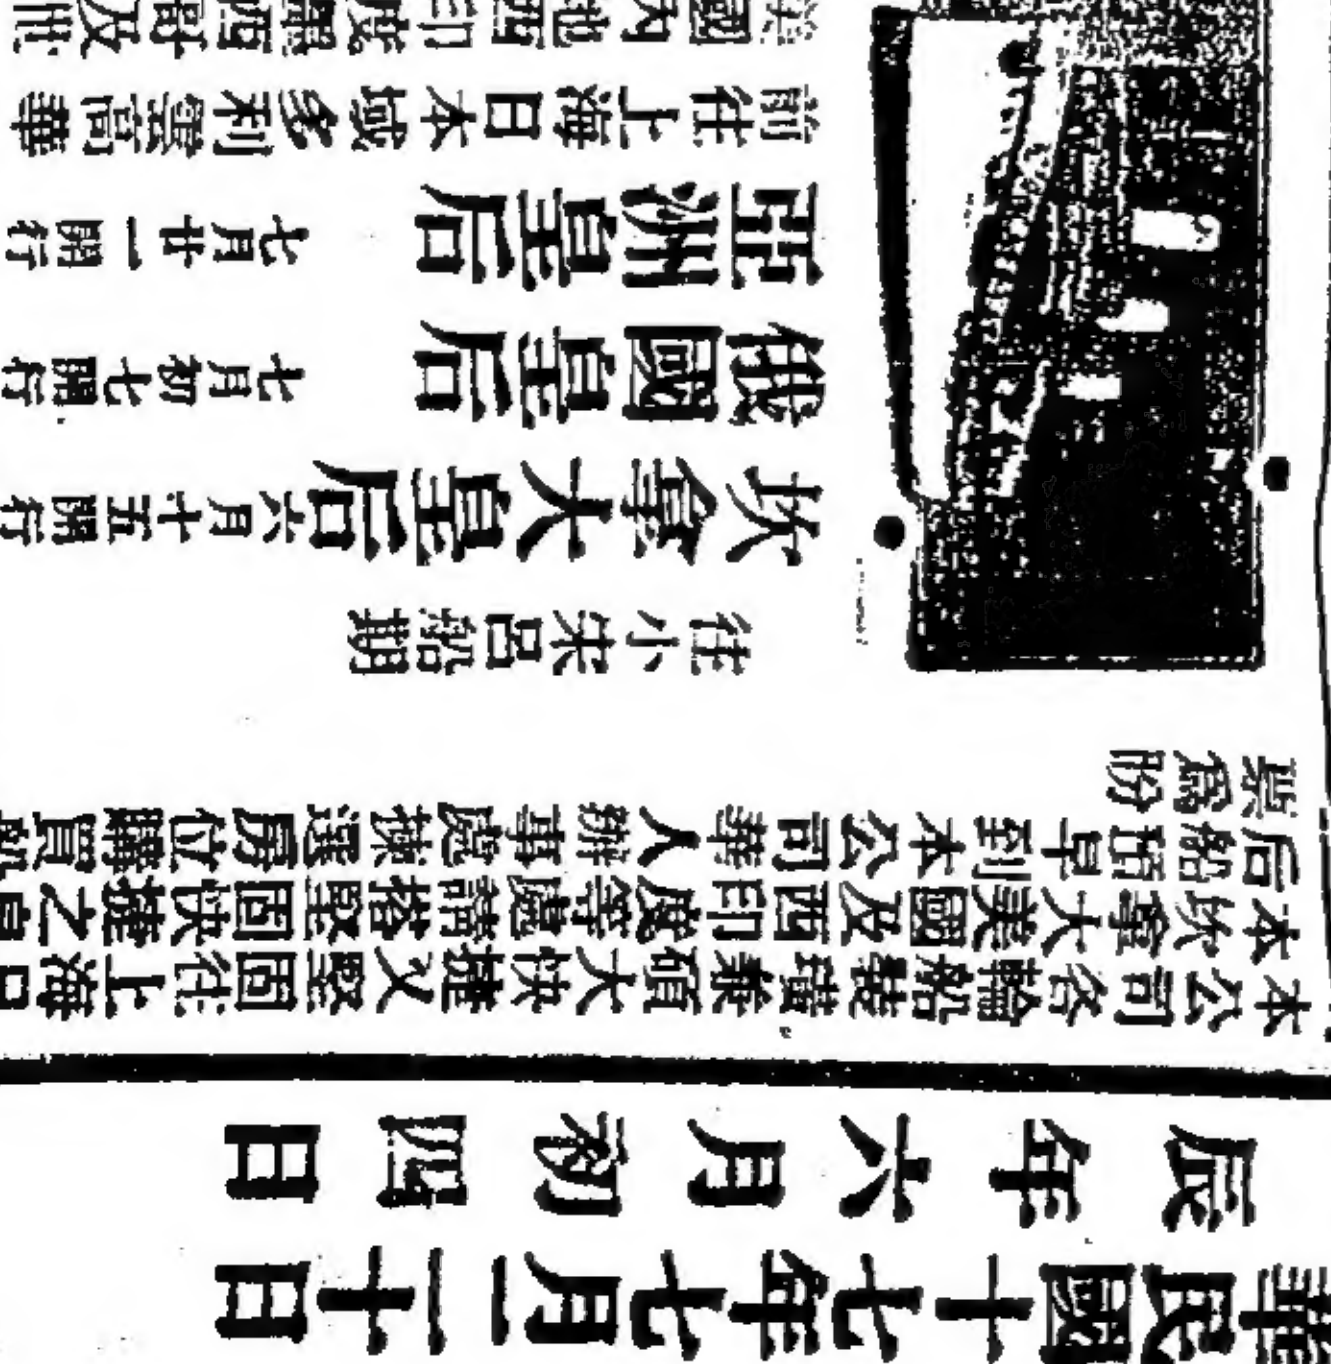 華民國十七年七月二十日
辰年六月初四日
本公司各輪船裝璜兼碩大快捷又堅固往上海日
本坎拿大美國及西印度等處請搭堅固快捷之皇
后船祈早到本公司華人辦事處揀選房位購買船
票爲盼
往小宋呂船期
坎拿大皇后 六月十五開行
俄國皇后 七月初七開行
亞洲皇后 七月廿一開行
前往上海日本域多利雲高華
美國內地西印度墨西哥及他